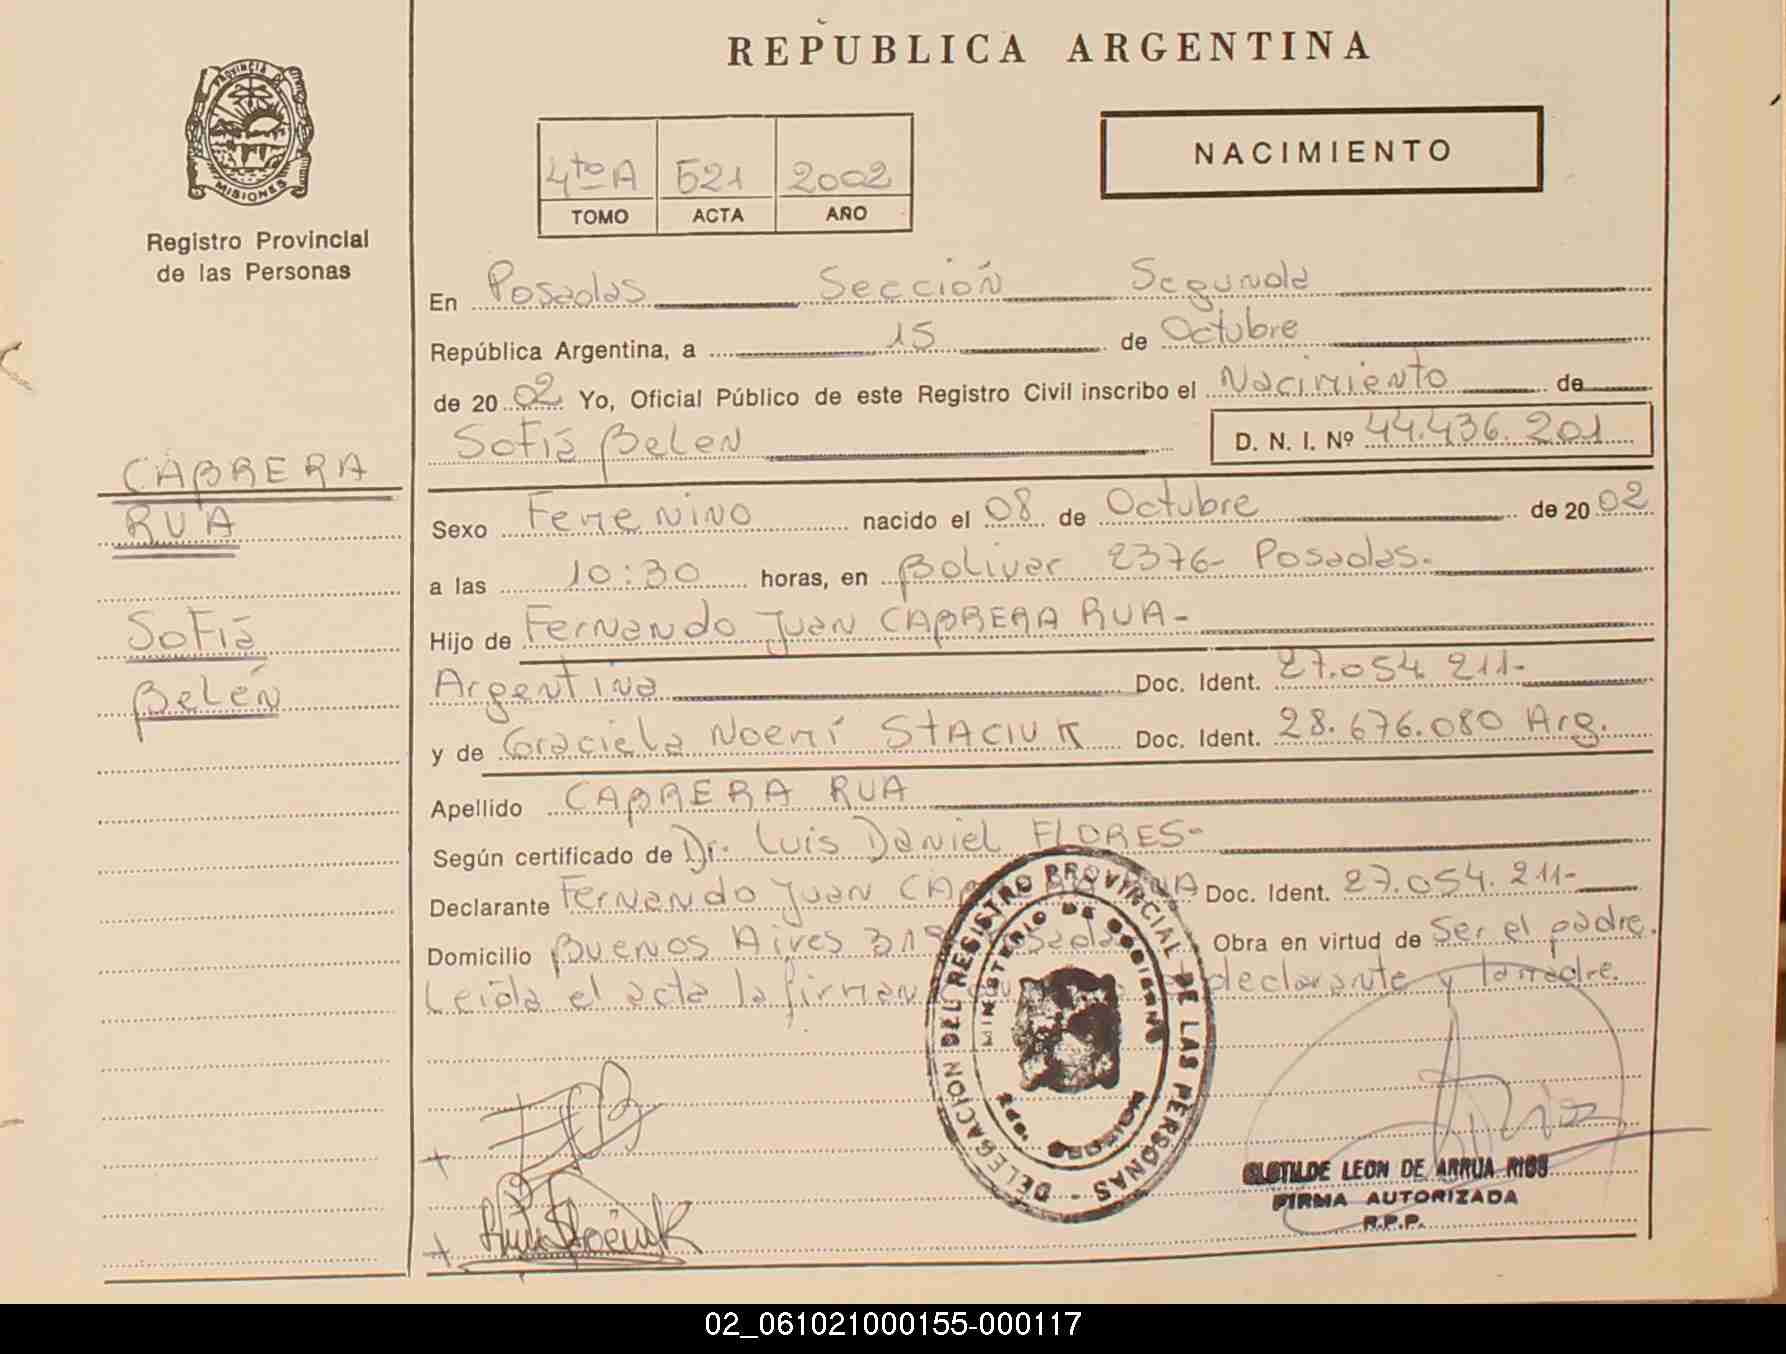 REPUBLICA ARGENTINA
PROVINCIA DE
MISIONES
Registro Provincial
de las Personas
4to A 521 2002
TOMO ACTA AÑO
NACIMIENTO
En Posadas Sección Segunda
República Argentina, a 15 de Octubre
de 20 02 Yo, Oficial Público de este Registro Civil inscribo el Nacimiento de
Sofía Belen D. N. I. Nº 44.436.201
CABRERA
RUA
Sofía
Belén
Sexo Femenino nacido el 08 de Octubre de 20 02
a las 10:30 horas, en Bolivar 2376- Posadas.
Hijo de Fernando Juan CABRERA RUA-
Argentina Doc. Ident. 27.054.211-
y de Graciela Noemí STACIUK Doc. Ident. 28.676.080 Arg.
Apellido CABRERA RUA
Según certificado de Dr. Luis Daniel FLORES-
Declarante Fernando Juan CABRERA RUA Doc. Ident. 27.054.211-
Domicilio Buenos Aires Posadas Obra en virtud de Ser el padre.
Leída el acta la firman declarante y la madre.
DELEGACION DEL REGISTRO PROVINCIAL DE LAS PERSONAS -
MINISTERIO DE GOBIERNO
MISIONES
CLOTILDE LEON DE ARRUA RIOS
FIRMA AUTORIZADA
R.P.P.
02_061021000155-000117